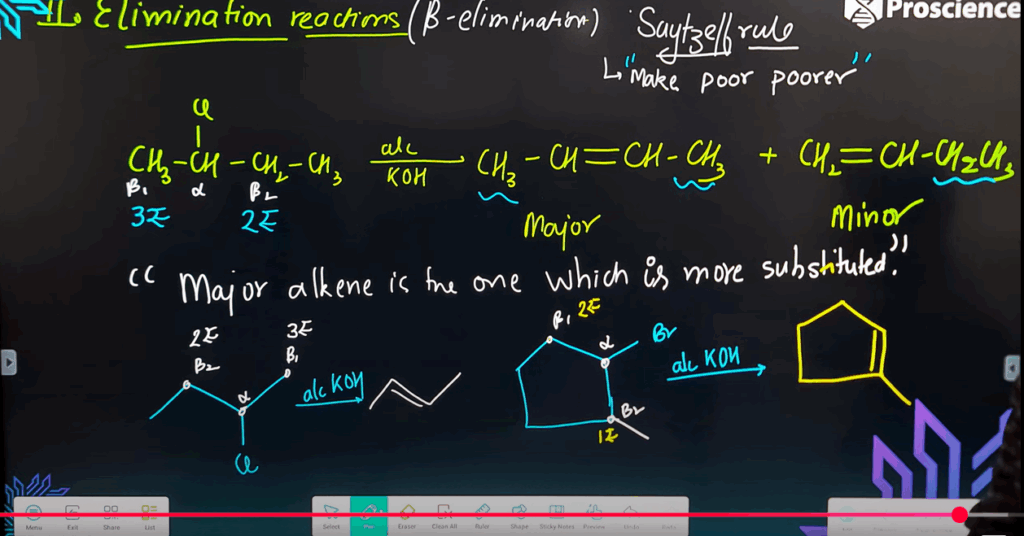 II. Elimination reactions (β-elimination) Saytzeff rule
Proscience
↳ "Make poor poorer"
Cl
CH₃-CH-CH₂-CH₃ alc KOH CH₃-CH=CH-CH₃ + CH₂=CH-CH₂CH₃
β₁ α β₂
3Σ 2Σ
Major Minor
"Major alkene is the one which is more substituted."
2Σ 3Σ β₁ 2Σ Br
β₂ β₁ α
α alc KOH alc KOH
Br
1Σ
Cl
Menu Exit Share List Select Pen Eraser Clean All Ruler Shape Sticky Notes Preview Undo Redo